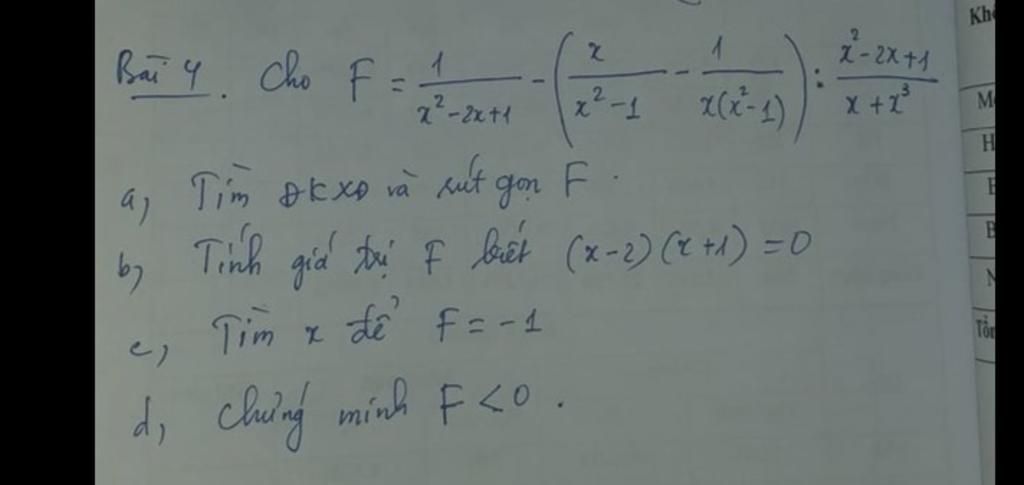 Bài 4. Cho F = \frac{1}{x^2-2x+1} - \left(\frac{x}{x^2-1} - \frac{1}{x(x^2-1)}\right) : \frac{x^2-2x+1}{x+x^3}
a, Tìm ĐKXĐ và rút gọn F.
b, Tính giá trị F biết (x-2)(x+1)=0
c, Tìm x để F = -1
d, Chứng minh F < 0.
Khô
M
H
E
B
N
Tổn